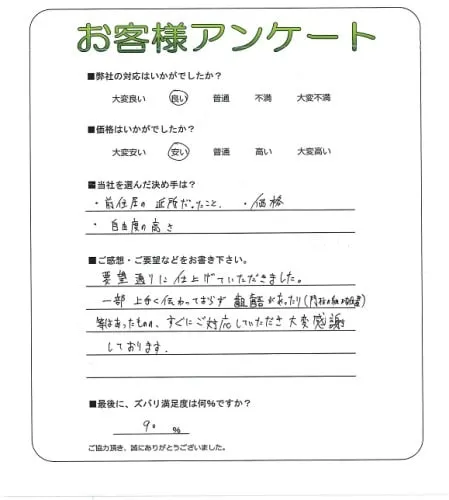 お客様アンケート
■弊社の対応はいかがでしたか？
大変良い 良い 普通 不満 大変不満
■価格はいかがでしたか？
大変安い 安い 普通 高い 大変高い
■当社を選んだ決め手は？
・前住居の近所だったこと、 ・価格
・自由度の高さ
■ご感想・ご要望などをお書き下さい。
要望通りに仕上げていただきました。
一部上手く伝わっておらず齟齬があったり(
等はあったものの、すぐにご対応していただき大変感謝
しております．
■最後に、ズバリ満足度は何%ですか？
90 %
ご協力頂き、誠にありがとうございました。